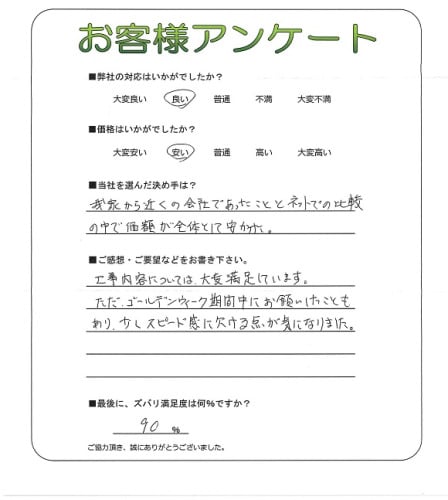 お客様アンケート
■弊社の対応はいかがでしたか?
大変良い 良い 普通 不満 大変不満
■価格はいかがでしたか?
大変安い 安い 普通 高い 大変高い
■当社を選んだ決め手は?
我家から近くの会社であったこととネットでの比較
の中で価額が全体として安かった。
■ご感想・ご要望などをお書き下さい。
工事内容については、大変満足しています。
ただ、ゴールデンウィーク期間中にお願いしたことも
あり、少しスピード感に欠ける点が気になりました。
■最後に、ズバリ満足度は何%ですか?
90 %
ご協力頂き、誠にありがとうございました。